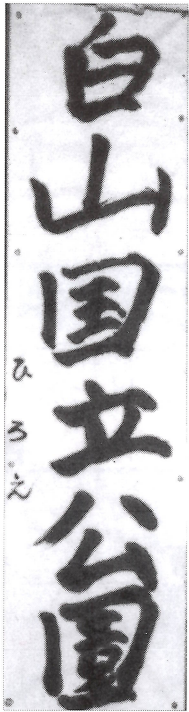 白山国立公園
ひろえ